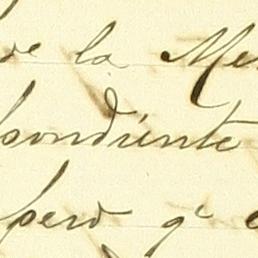 de la Me
pondiente
pero qe